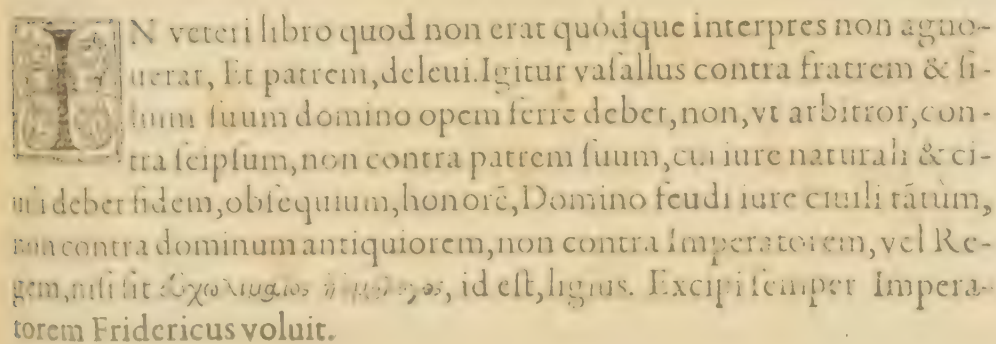 IN veteri libro quod non erat quodque interpres non agno-
uerat, Et patrem, deleui. Igitur vasallus contra fratrem & fi-
lium suum domino opem ferre debet, non, vt arbitror, con-
tra seipsum, non contra patrem suum, cui iure naturali & ci-
uili debet fidem, obsequium, honorē, Domino feudi iure ciuili tātùm,
non contra dominum antiquiorem, non contra Imperatorem, vel Re-
gem, nisi sit id est, ligius. Excipi semper Impera-
torem Fridericus voluit.